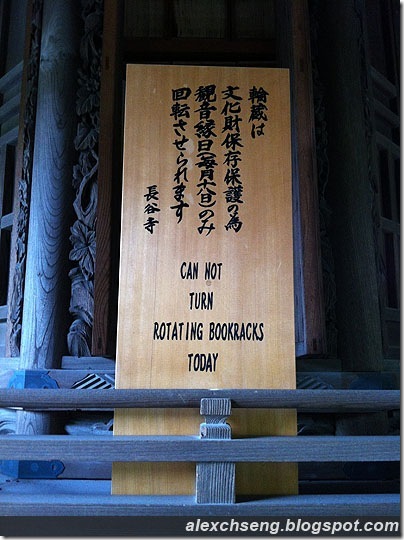 輪蔵は
文化財保存保護の為
観音縁日(毎月十八日)のみ
回転させられます
長谷寺
CAN NOT
TURN
ROTATING BOOKRACKS
TODAY
alexchseng.blogspot.com